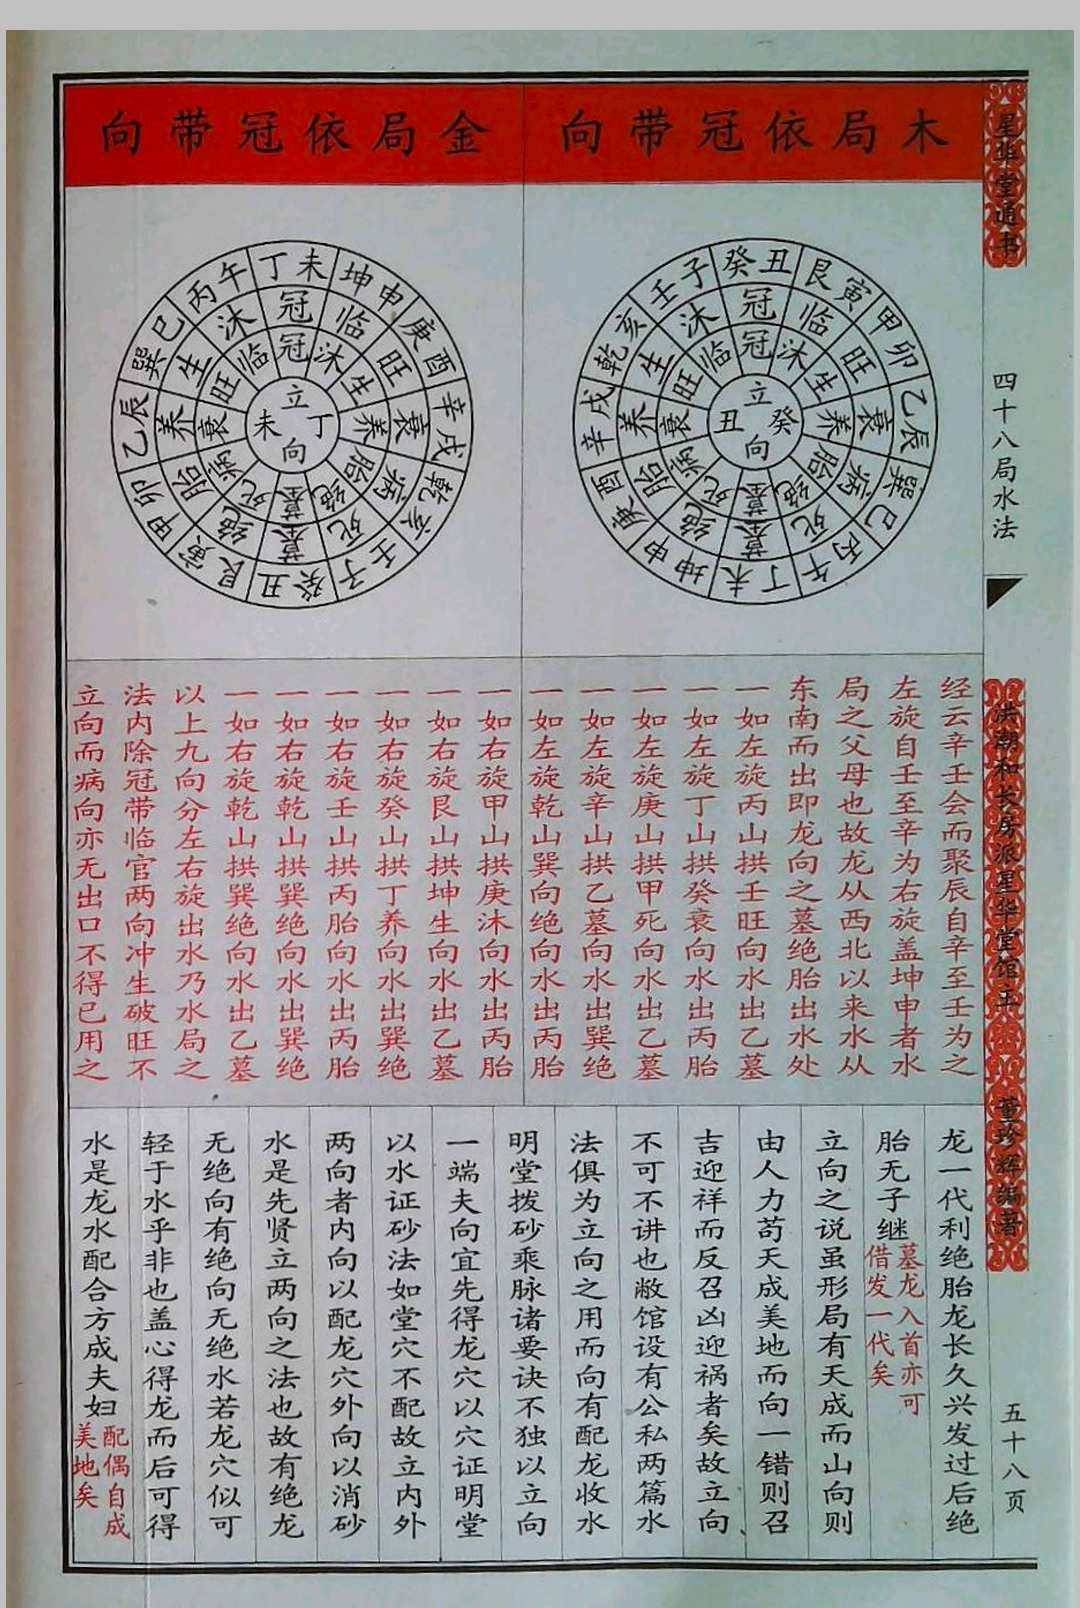 星华堂通书
四十八局水法
洪潮和长房派星华堂馆主
董珍辉编著
五十八页
木局依冠带向
癸丑 艮寅 甲卯 乙辰 巽巳 丙午 丁未 坤申 庚酉 辛戌 乾亥 壬子
冠 临 旺 衰 病 死 墓 绝 胎 养 生 沐
冠 沐 生 养 胎 绝 墓 死 病 衰 旺 临
立向
癸丑
金局依冠带向
丁未 坤申 庚酉 辛戌 乾亥 壬子 癸丑 艮寅 甲卯 乙辰 巽巳 丙午
冠 临 旺 衰 病 死 墓 绝 胎 养 生 沐
冠 沐 生 养 胎 绝 墓 死 病 衰 旺 临
立向
丁未
经云辛壬会而聚辰自辛至壬为之
左旋自壬至辛为右旋盖坤申者水
局之父母也故龙从西北以来水从
东南而出即龙向之墓绝胎出水处
一如左旋丙山拱壬旺向水出乙墓
一如左旋丁山拱癸衰向水出丙胎
一如左旋庚山拱甲死向水出乙墓
一如左旋辛山拱乙墓向水出巽绝
一如左旋乾山巽向绝向水出丙胎
一如右旋甲山拱庚沐向水出丙胎
一如右旋艮山拱坤生向水出乙墓
一如右旋癸山拱丁养向水出巽绝
一如右旋壬山拱丙胎向水出丙胎
一如右旋乾山拱巽绝向水出巽绝
一如右旋乾山拱巽绝向水出乙墓
以上九向分左右旋出水乃水局之
法内除冠带临官两向冲生破旺不
立向而病向亦无出口不得已用之
龙一代利绝胎龙长久兴发过后绝
胎无子继墓龙入首亦可借发一代矣
立向之说虽形局有天成而山向则
由人力苟天成美地而向一错则召
吉迎祥而反召凶迎祸者矣故立向
不可不讲也敝馆设有公私两篇水
法俱为立向之用而向有配龙收水
明堂拨砂乘脉诸要诀不独以立向
一端夫向宜先得龙穴以穴证明堂
以水证砂法如堂穴不配故立内外
两向者内向以配龙穴外向以消砂
水是先贤立两向之法也故有绝龙
无绝向有绝向无绝水若龙穴似可
轻于水乎非也盖心得龙而后可得
水是龙水配合方成夫妇配偶自成美地矣